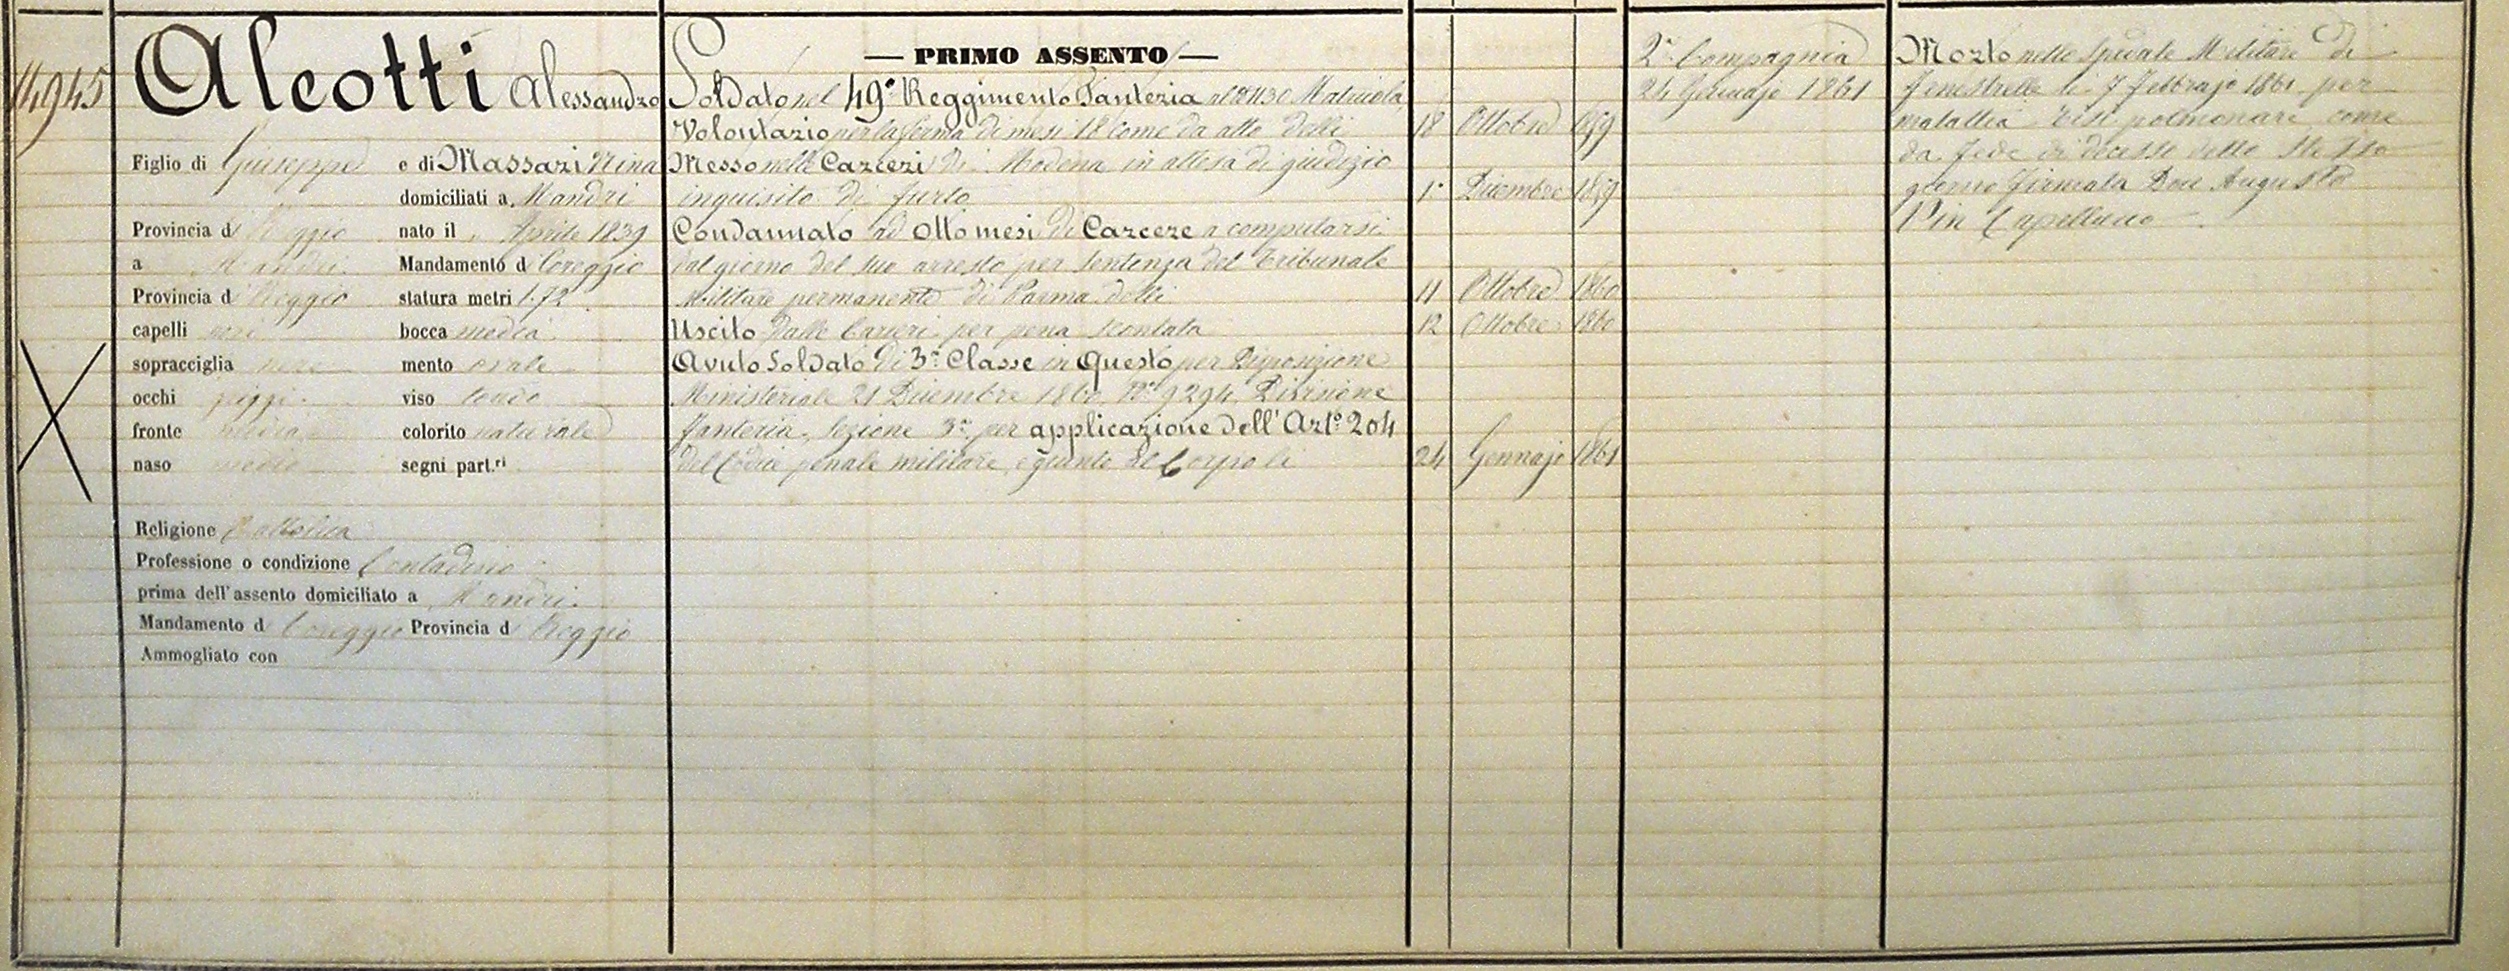 14945
Alcotti Alessandro
Figlio di Giuseppe e di Massari Nina
domiciliati a Mandri
Provincia di Reggio nato il " Aprile 1839
a Mandri Mandamento di Coreggio
Provincia di Reggio statura metri 1.72
capelli neri bocca media
sopracciglia nere mento ovale
occhi griggi viso tondo
fronte media colorito naturale
naso medio segni part.ri
Religione Cattolica
Professione o condizione Contadino
prima dell'assento domiciliato a Mandri
Mandamento di Coreggio Provincia di Reggio
Ammogliato con
— PRIMO ASSENTO —
Soldato nel 49° Reggimento Fanteria al N 1130 Matricola
Volontario per la ferma di mesi 18 come da atto delli 18 Ottobre 1859
Messo nelle Carceri di Modena in attesa di giudizio
inquisito di furto 1° Dicembre 1859
Condannato ad otto mesi di Carcere a computarsi
dal giorno del suo arresto per sentenza del Tribunale
Militare permanente di Parma delli 11 Ottobre 1860
Uscito dalle Carceri per pena scontata 12 Ottobre 1860
Avuto Soldato di 3ª Classe in Questo per Disposizione
Ministeriale 21 Dicembre 1860 N° 9294, Divisione
Fanteria, Sezione 3ª per applicazione dell' Art° 204
del Codice penale militare, e giunto al Corpo li 24 Gennajo 1861
2ª Compagnia
24 Gennajo 1861
Morto nello Spedale Militare di
Fenestrelle li 7 Febbrajo 1861 per
malattia Tisi polmonare come
da fede di decesso dello stesso
giorno firmata Don Augusto
Vin Capellano